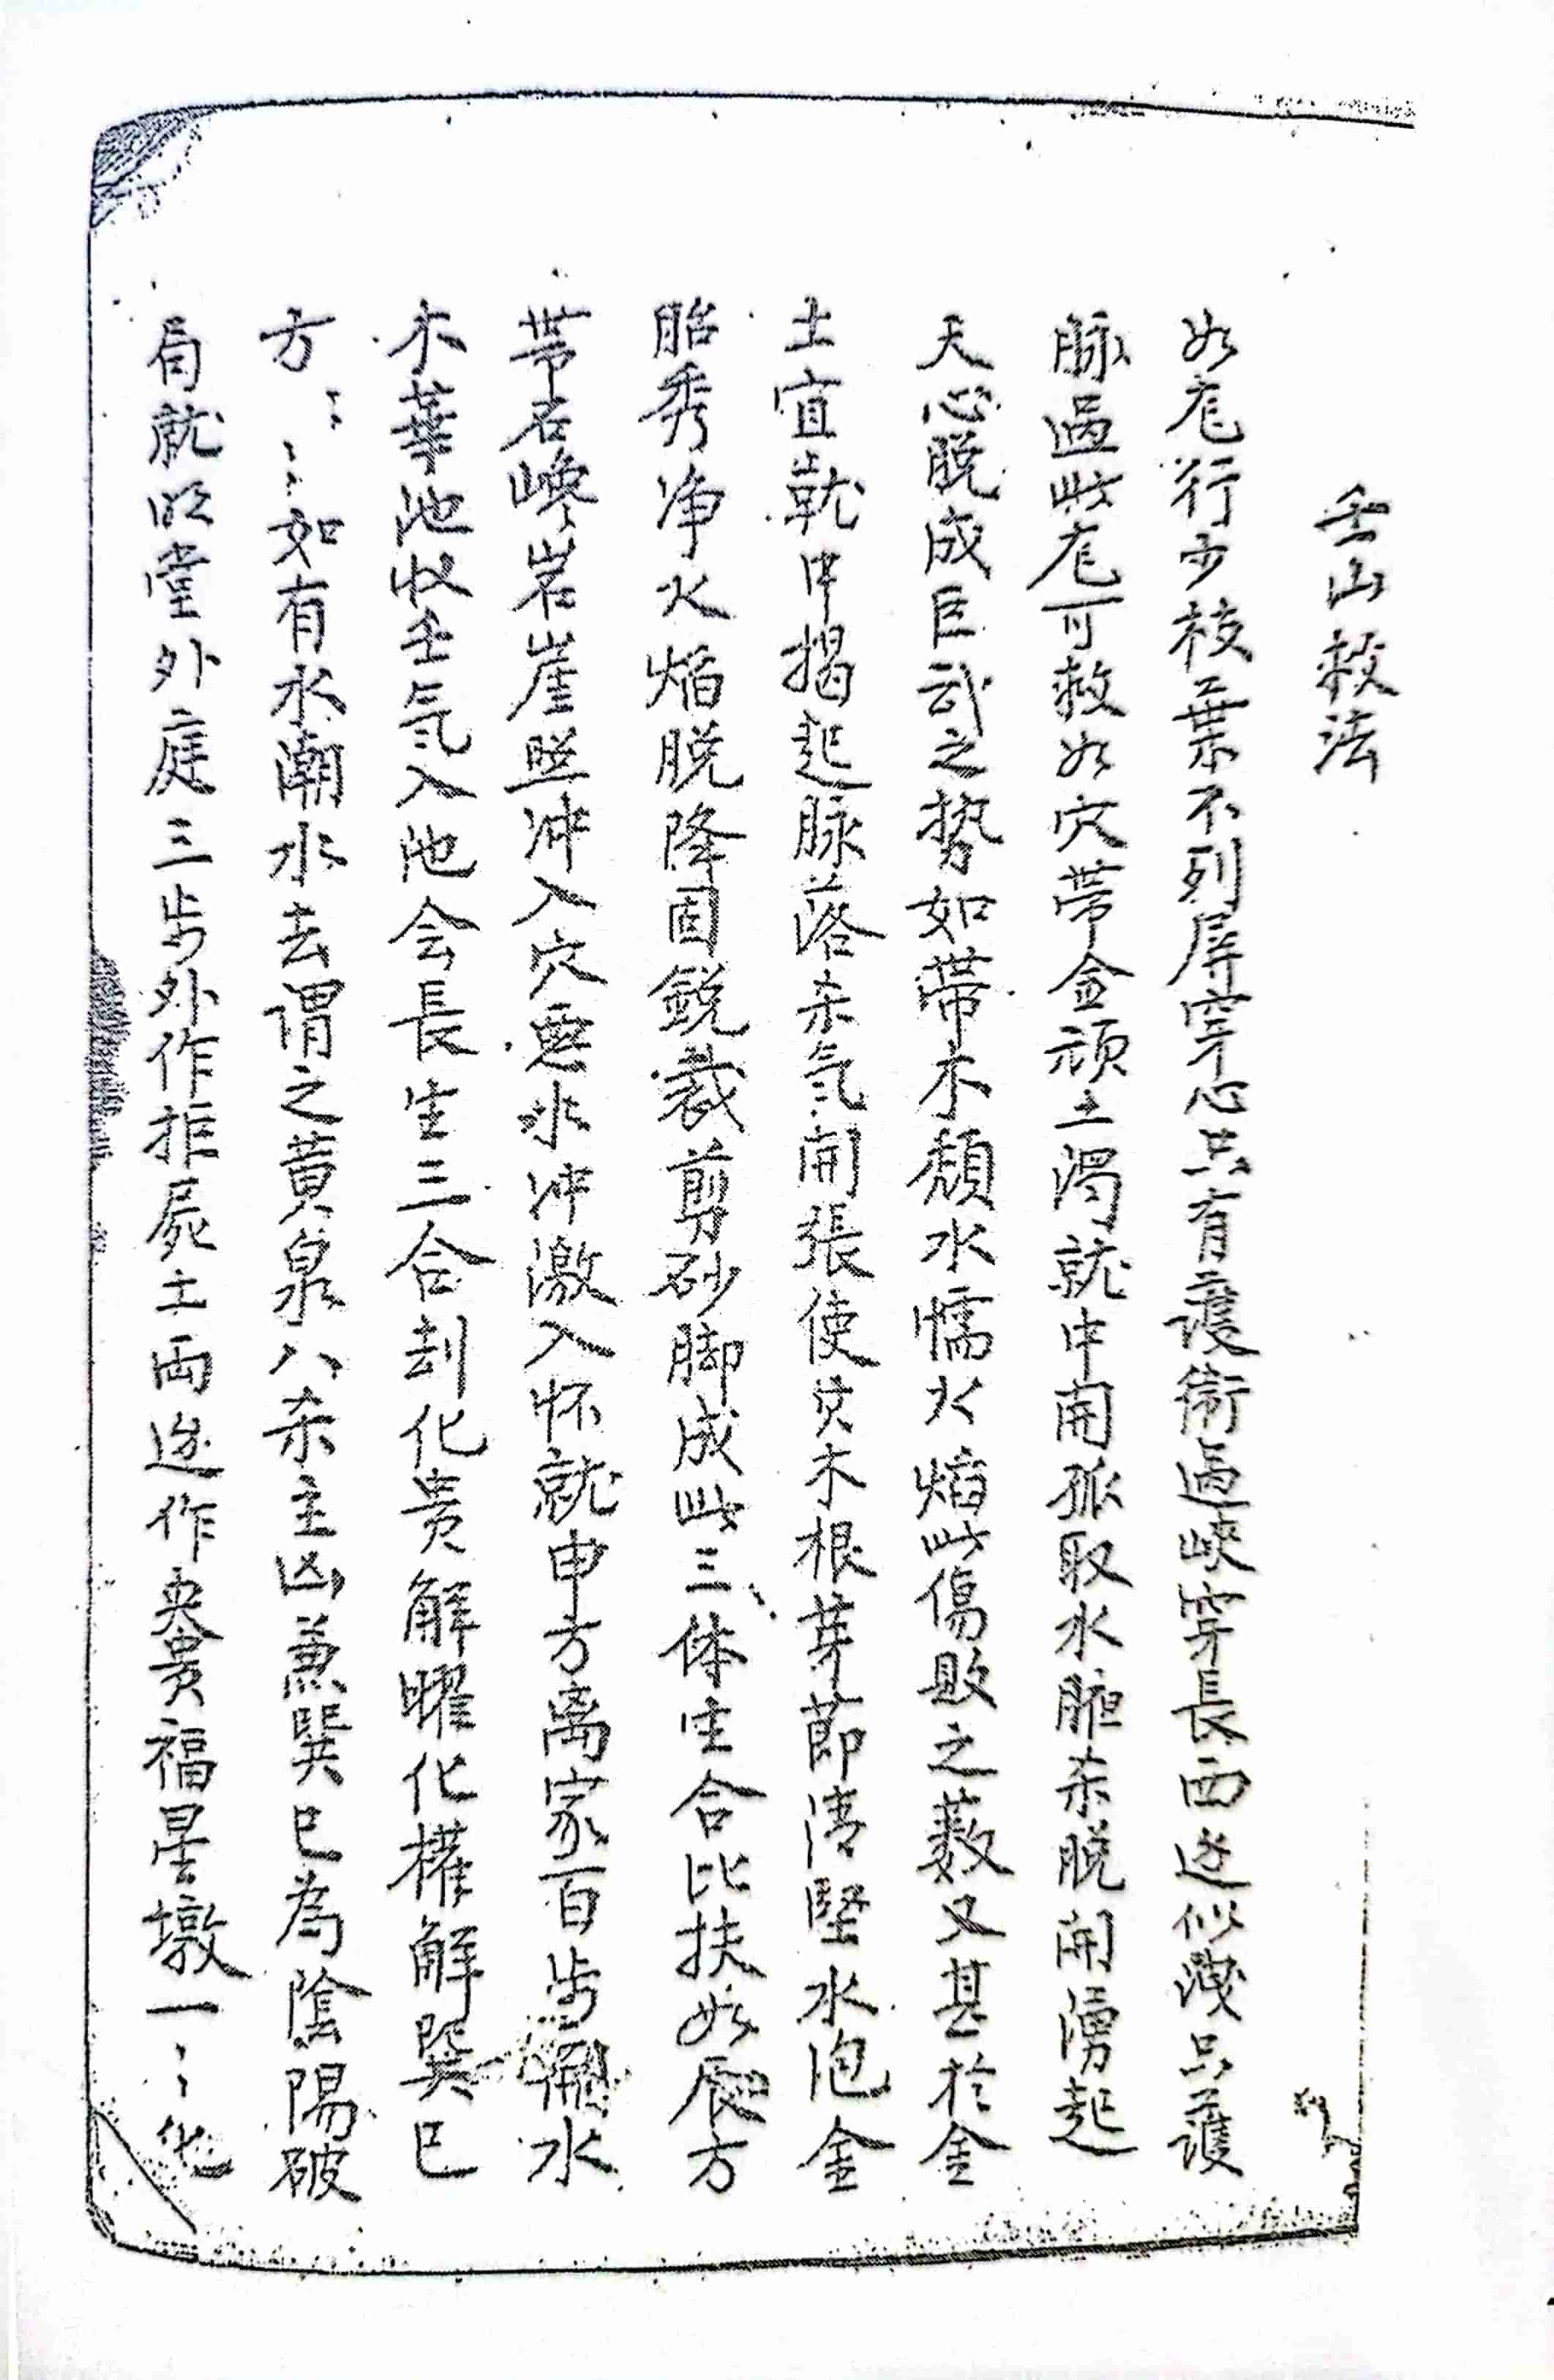 壬山救法
如尨行少枝葉不列屏穿心只有護衛過峽穿長両边似濺只護
脉過此尨可救如穴帶金頑土濁就中開孤取水脏杀脱開湧起
天心脱成巨武之勢如帶木頹水懦火焰此傷敗之薮又甚於金
土宜就中揭起脉落杀気開張使穴木根芽節清堅水泡金
胎秀净火焰脱降固鋭裁剪砂脚成此三体生合比扶如辰方
帶石巉岩崖照冲入穴惡水冲激入怀就申方离家百步水
木華池収壬気入池会長生三合刦化贵解曜化權解巽巳
方如有水潮水去谓之黄泉八杀主凶兼巽巳為陰陽破
局就明堂外庭三步外作拒屍土両边作贵福星墩一化